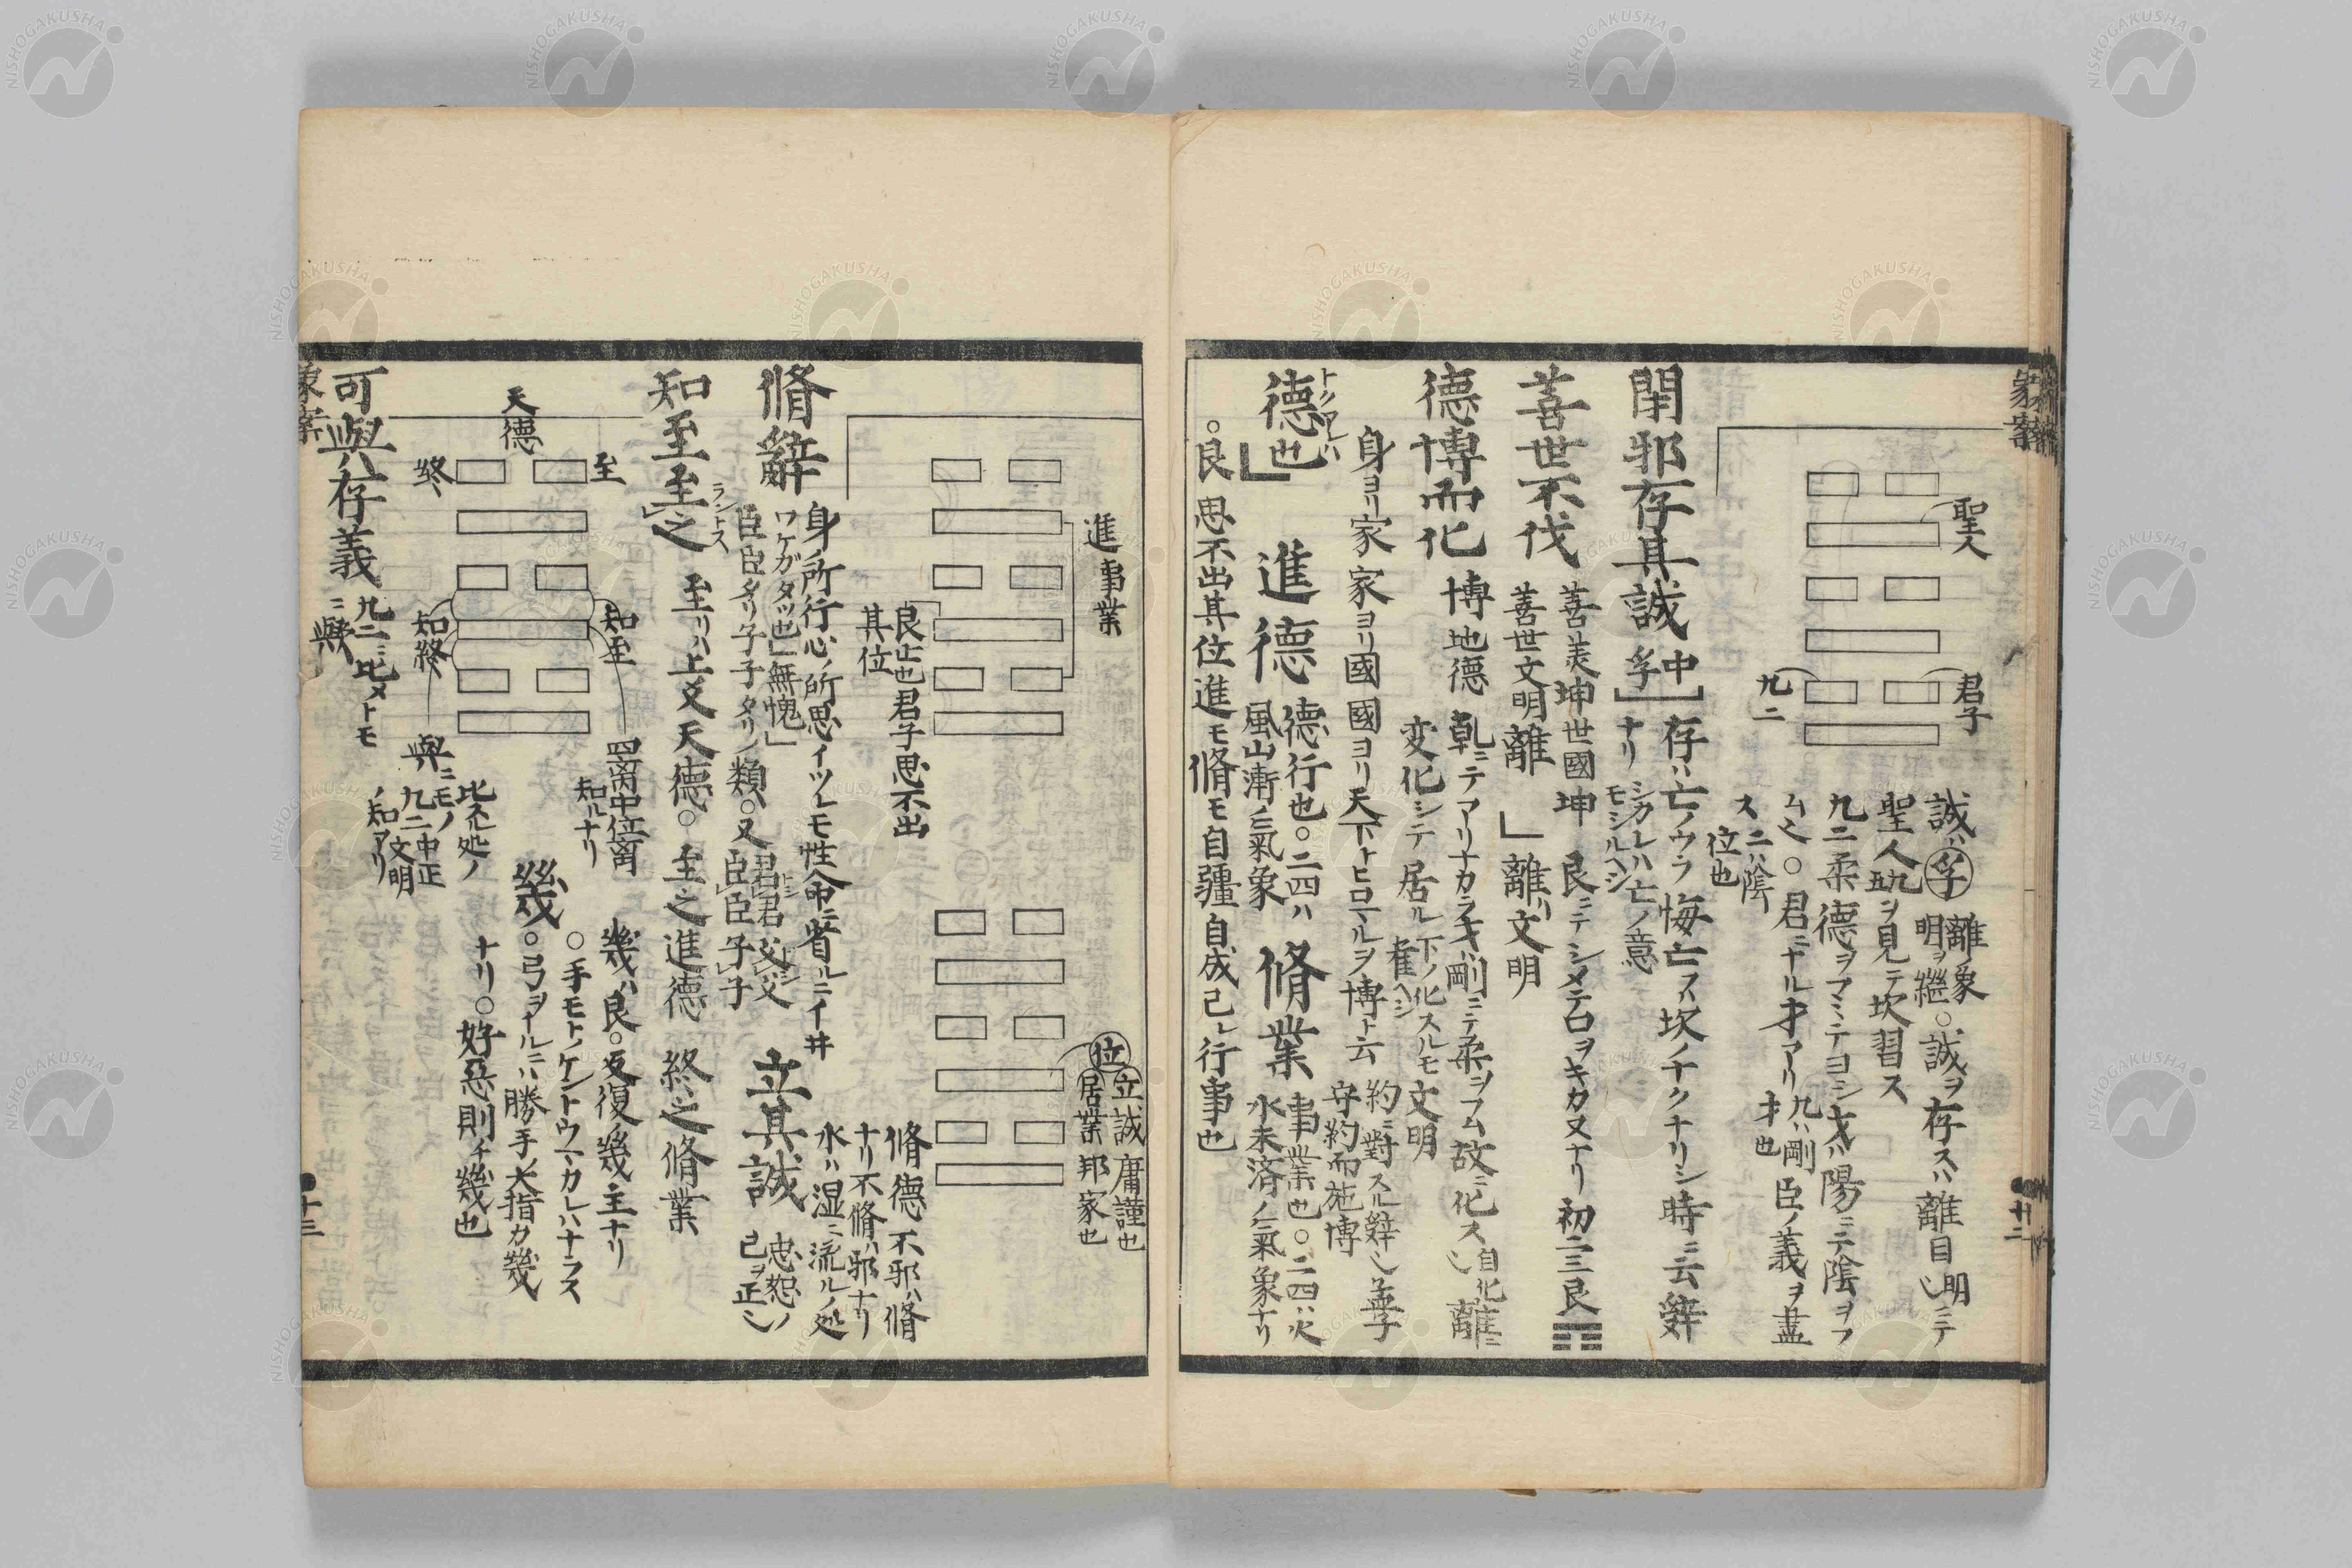 聖人
君子
九二
誠ハ孚 離象 明ヲ繼 。誠ヲ存スハ離目 明ニテ
聖人 九五ヲ見テ坎習ス
九二柔德ヲフミテヨシ才ハ陽ニテ陰ヲフ
ム 。君ニナル才アリ九ハ剛臣ノ義ヲ盡
ス二ハ陰位也
才也
閑邪存其誠 中孚 存ハ亡ノウラ悔亡ス坎ノナクナリシ時ニ云辭
ナリ シカレハ亡ノ意モシルヘシ
善世不伐 善美坤世國坤 艮ニテシメテ口ヲキカヌナリ初二三艮☶
善世文明離 離ハ文明
德博而化 博地德 乾ニテアリナカラ才剛ニテ柔ヲフム故ニ化ス 自化離ニ
変化シテ居ル下ノ化スルモ文明
身ヨリ家家ヨリ國國ヨリ天下トヒロマルヲ博ト云 約ニ對スル辭 孟子
守約而施博
德也 進德 德行也。二四ハ 風山漸ノ氣象 脩業 事業也。二四ハ火水未済ノ氣象ナリ
。艮思不出其位進モ脩モ自疆自成己レ行事也
進事業
艮止也君子思不出
其位
位 立誠庸謹也
居業邦家也
脩德不邪ハ脩
ナリ不脩ハ邪ナリ
水ハ湿ニ流ルノ処
脩辭 身ノ所行心ノ所思イツレモ性命ニ省ルニイ井
ワケガタツ也 無愧
臣臣タリ子子タリノ類。又君君父父
臣臣子子
立其誠 忠恕ノ
己ヲ正シ
知至至之 至リハ上爻天德。至之進德 終之脩業
天德
至
終
知至
知終
四离中位离
知ルナリ
幾ハ艮。反復ノ幾主ナリ
。手モトノケントウマカレハナラス
幾 。弓ヲイルニハ勝手ノ大指カ幾
ナリ。好惡則チ幾也
比スル処ノ
與ニモノ
九二中正文明
ノ知アリ
可與存義 九二ニ比メトモ
ニ與
十二
十三
NISHOGAKUSHA